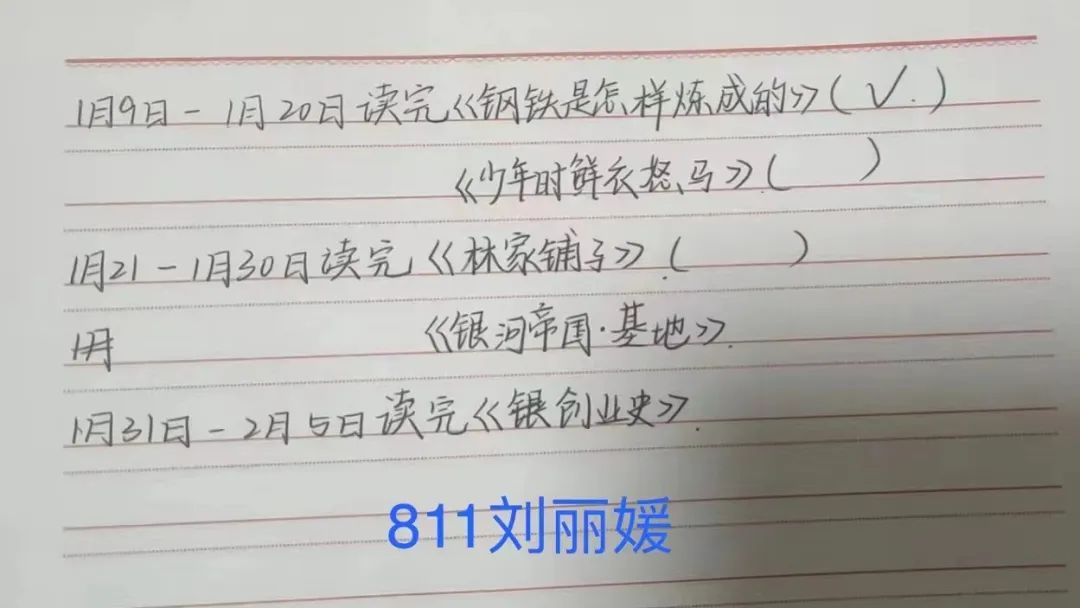 1月9日-1月20日读完《钢铁是怎样炼成的》(√.)
《少年时鲜衣怒马》.( )
1月21-1月30日读完《林家铺子》.( )
1月
《银河帝国·基地》.
1月31日-2月5日读完《银创业史》.
811刘丽媛